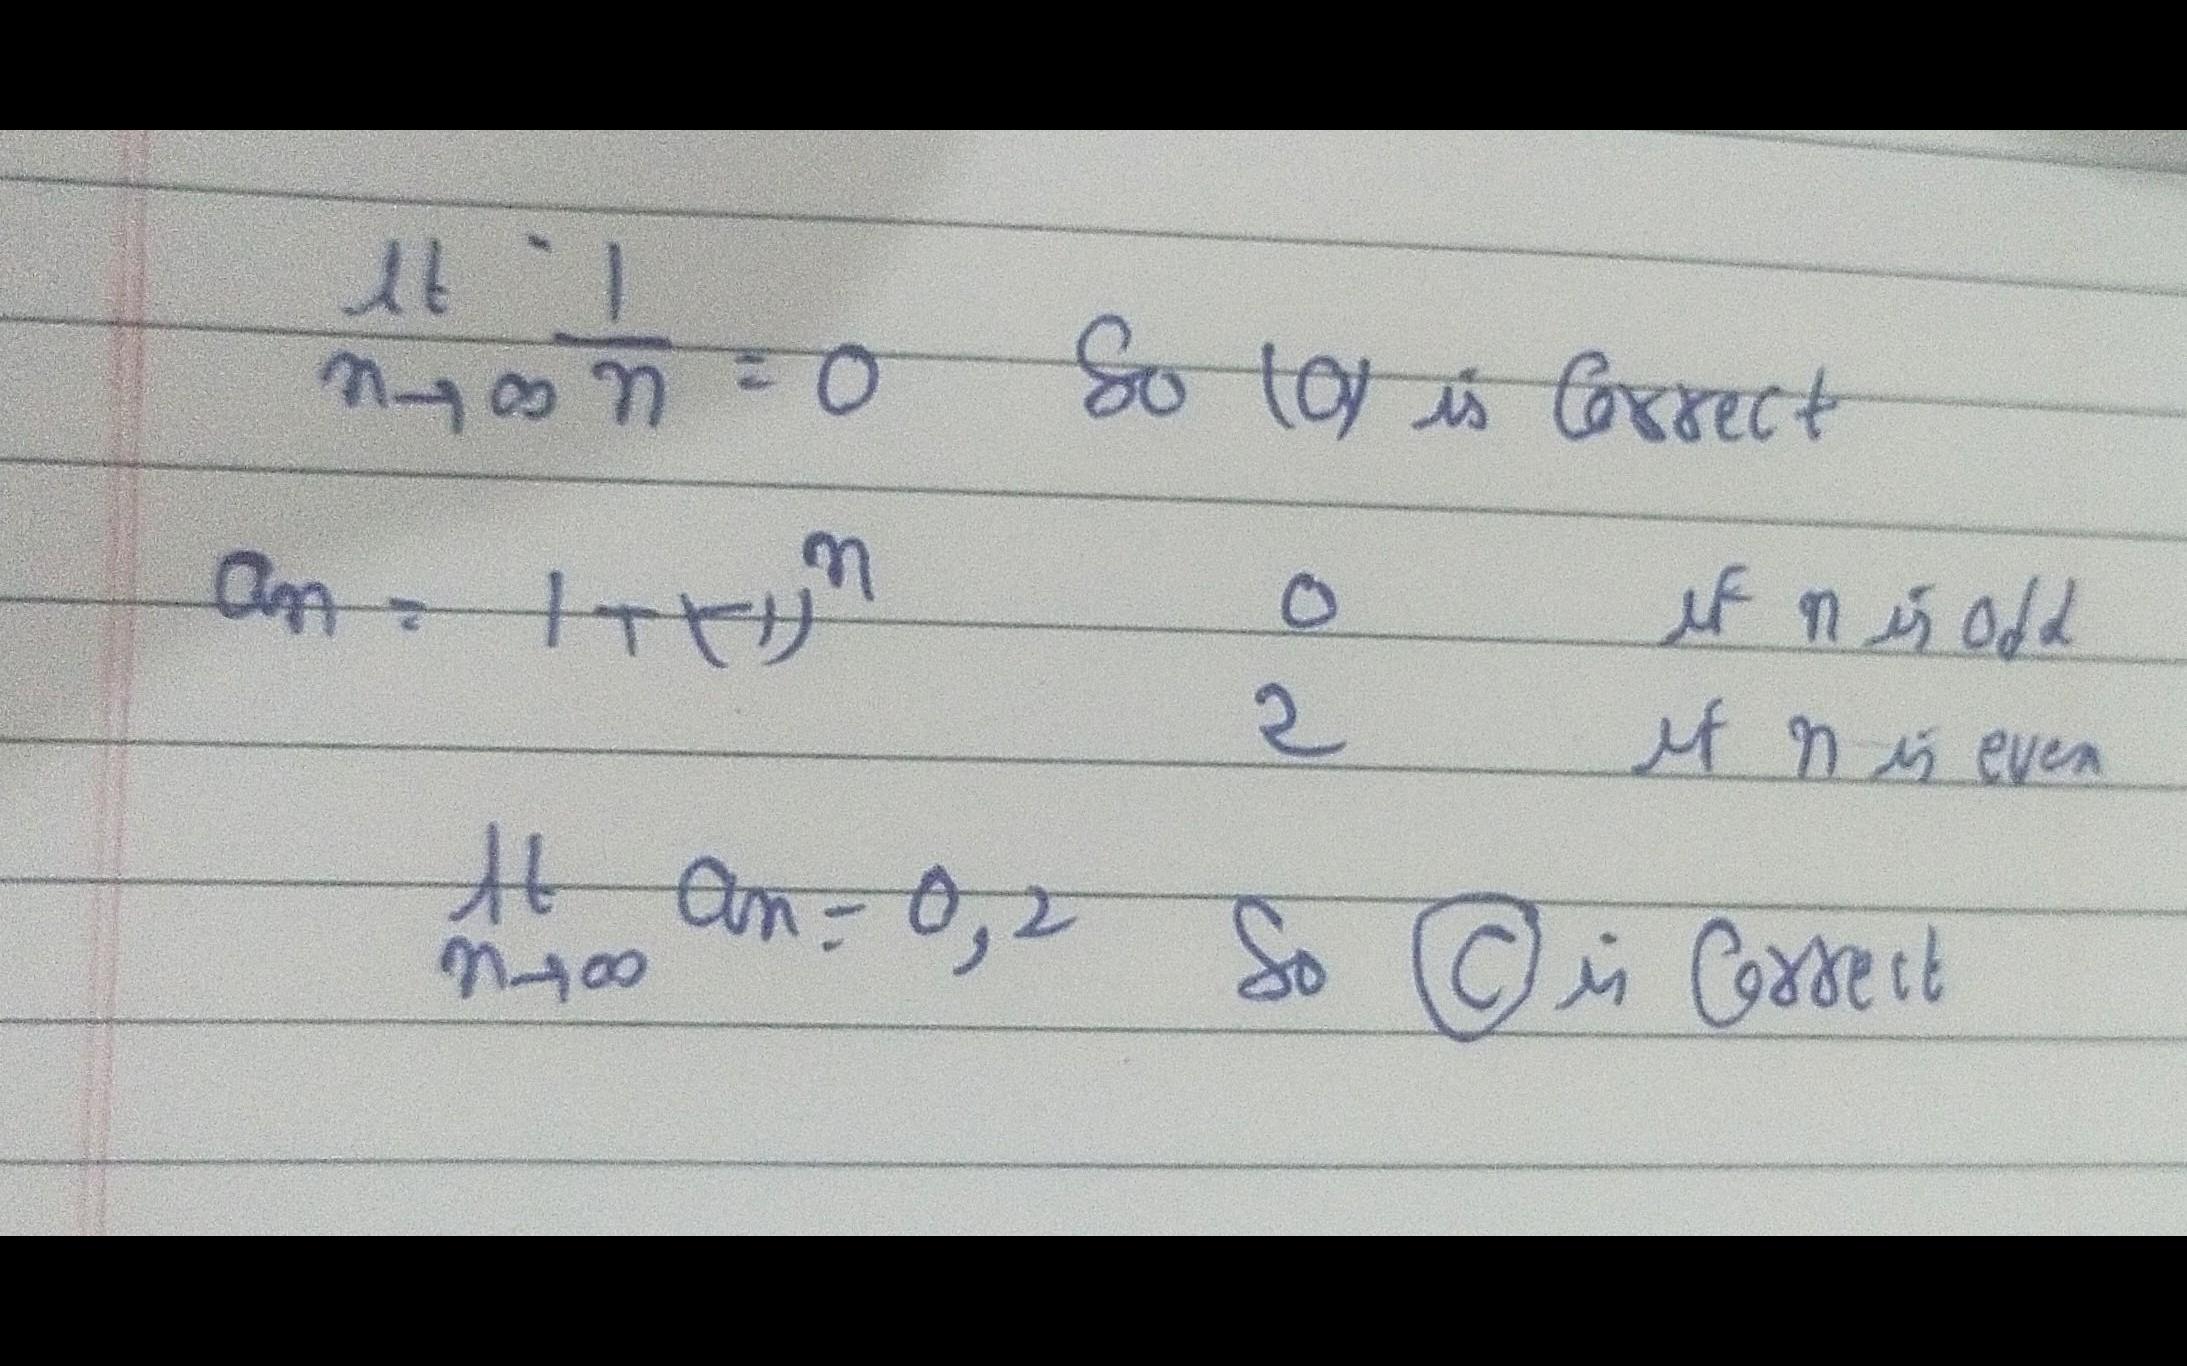 lt 1/n = 0 So (a) is Correct
n→∞
an = 1+(-1)^n 0 if n is odd
2 if n is even
lt an = 0,2 So (C) is Correct
n→∞